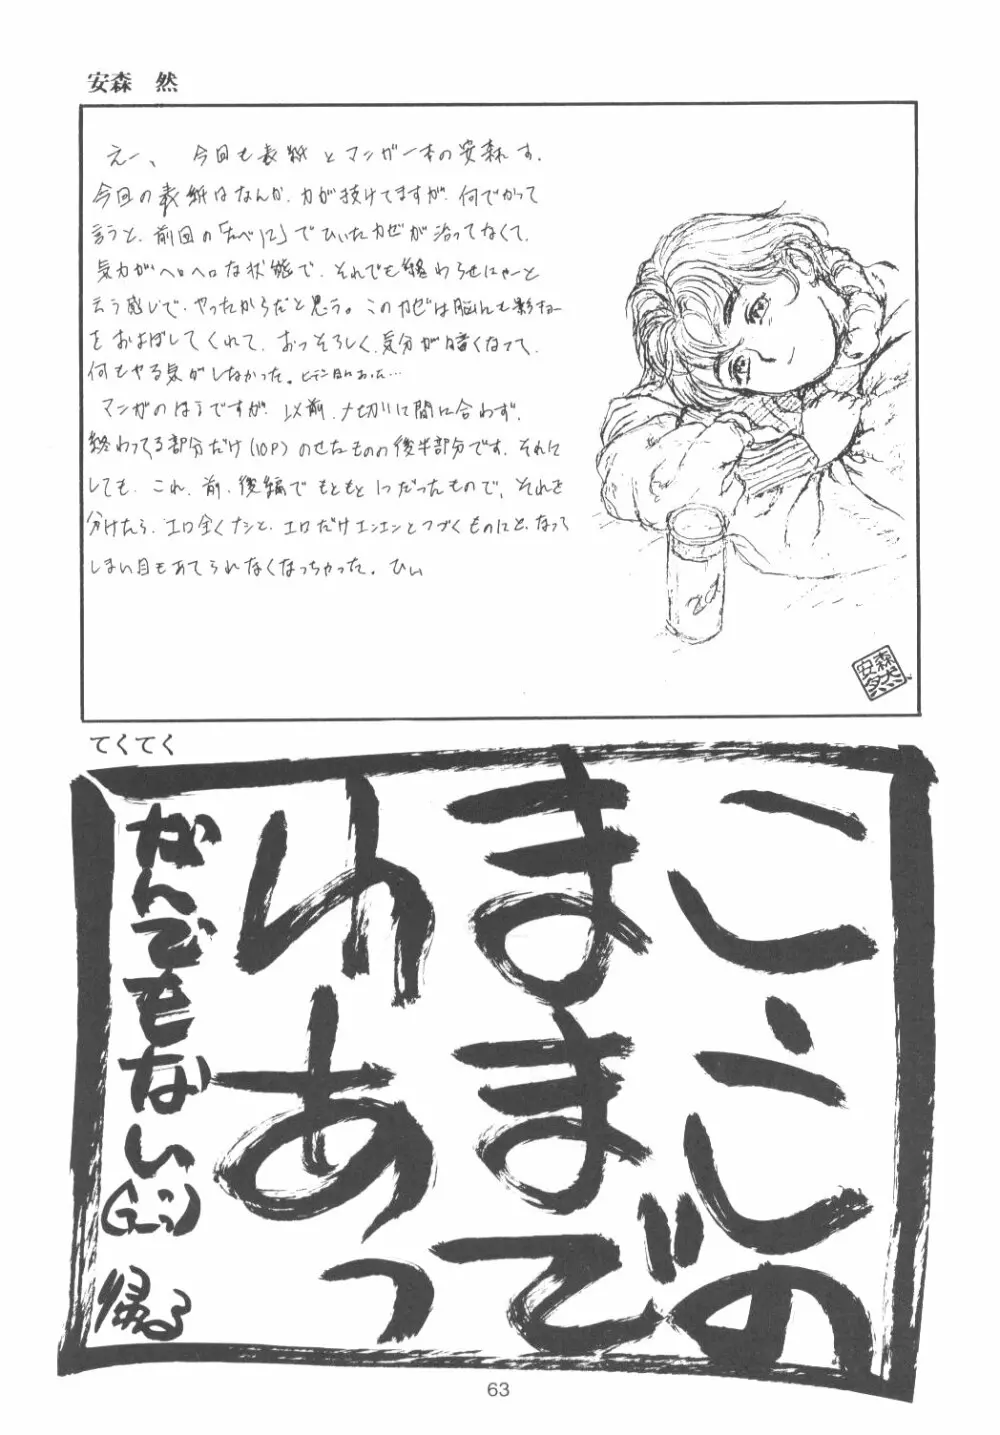 安森 然
えー、今回も表紙とマンガ一本の安森れす.
今回の表紙はなんか、力が抜けてますが、何でかって
言うと、前回の「たべに」でひいたカゼが治ってなくて、
気力がヘロヘロな状態で、それでも終わらせにゃーと
云う感じで、やったからだと思う。このカゼは脳にも影キョー
をおよぼしてくれて、おっそろしく、気分が暗くなって、
何もやる気がしなかった。
マンガのほうですが、以前、〆切りに間に合わず、
終わってる部分だけ(10P)のせたものの後半部分です。それに
しても、これ、前、後編でもともと1つだったもので、それを
分けたら、エロ全くナシと、エロだけエンエンとつづくものにと、なって
しまい目もあてられなくなっちゃった。ひぃ
安森然
てくてく
こ、しの
ままで
いあっ
なんでもない
帰る
63